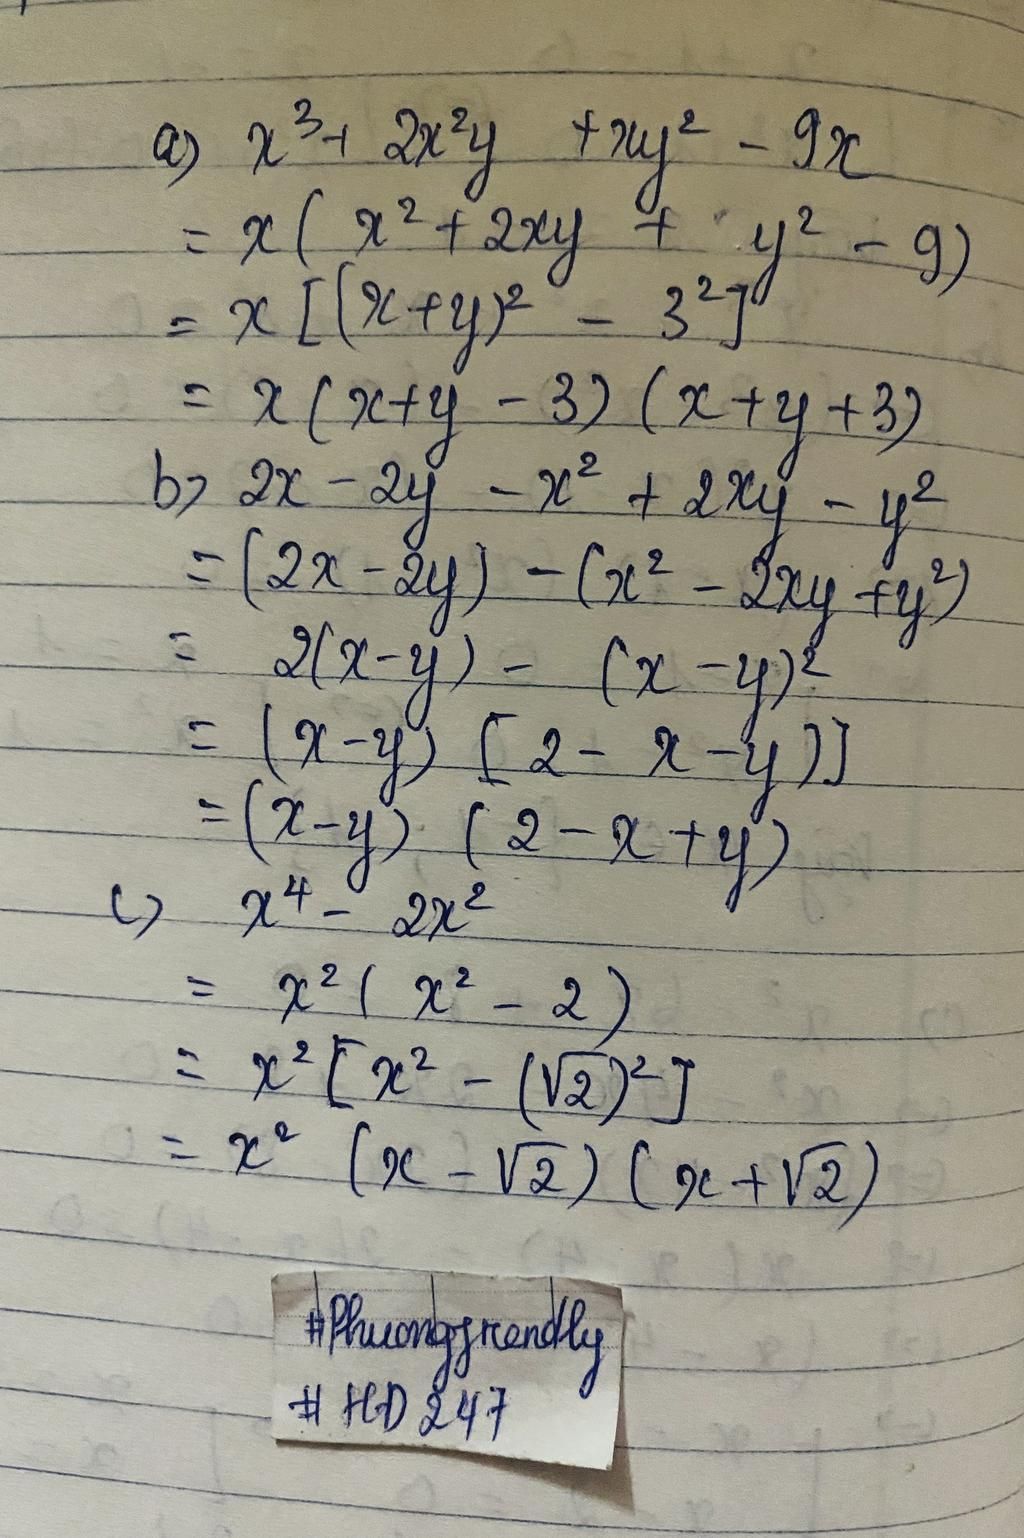 a) x³ + 2x²y + xy² - 9x
= x( x² + 2xy + y² - 9)
= x [(x+y)² - 3²]
= x (x+y - 3) (x + y + 3)
b) 2x - 2y - x² + 2xy - y²
= (2x - 2y) - (x² - 2xy + y²)
= 2(x-y) - (x - y)²
= (x-y) [2 - x - y)]
= (x-y) (2 - x + y)
c) x⁴ - 2x²
= x² ( x² - 2)
= x² [x² - (√2)²]
= x² (x - √2) (x + √2)
#Phuongfrendly
# HD 247